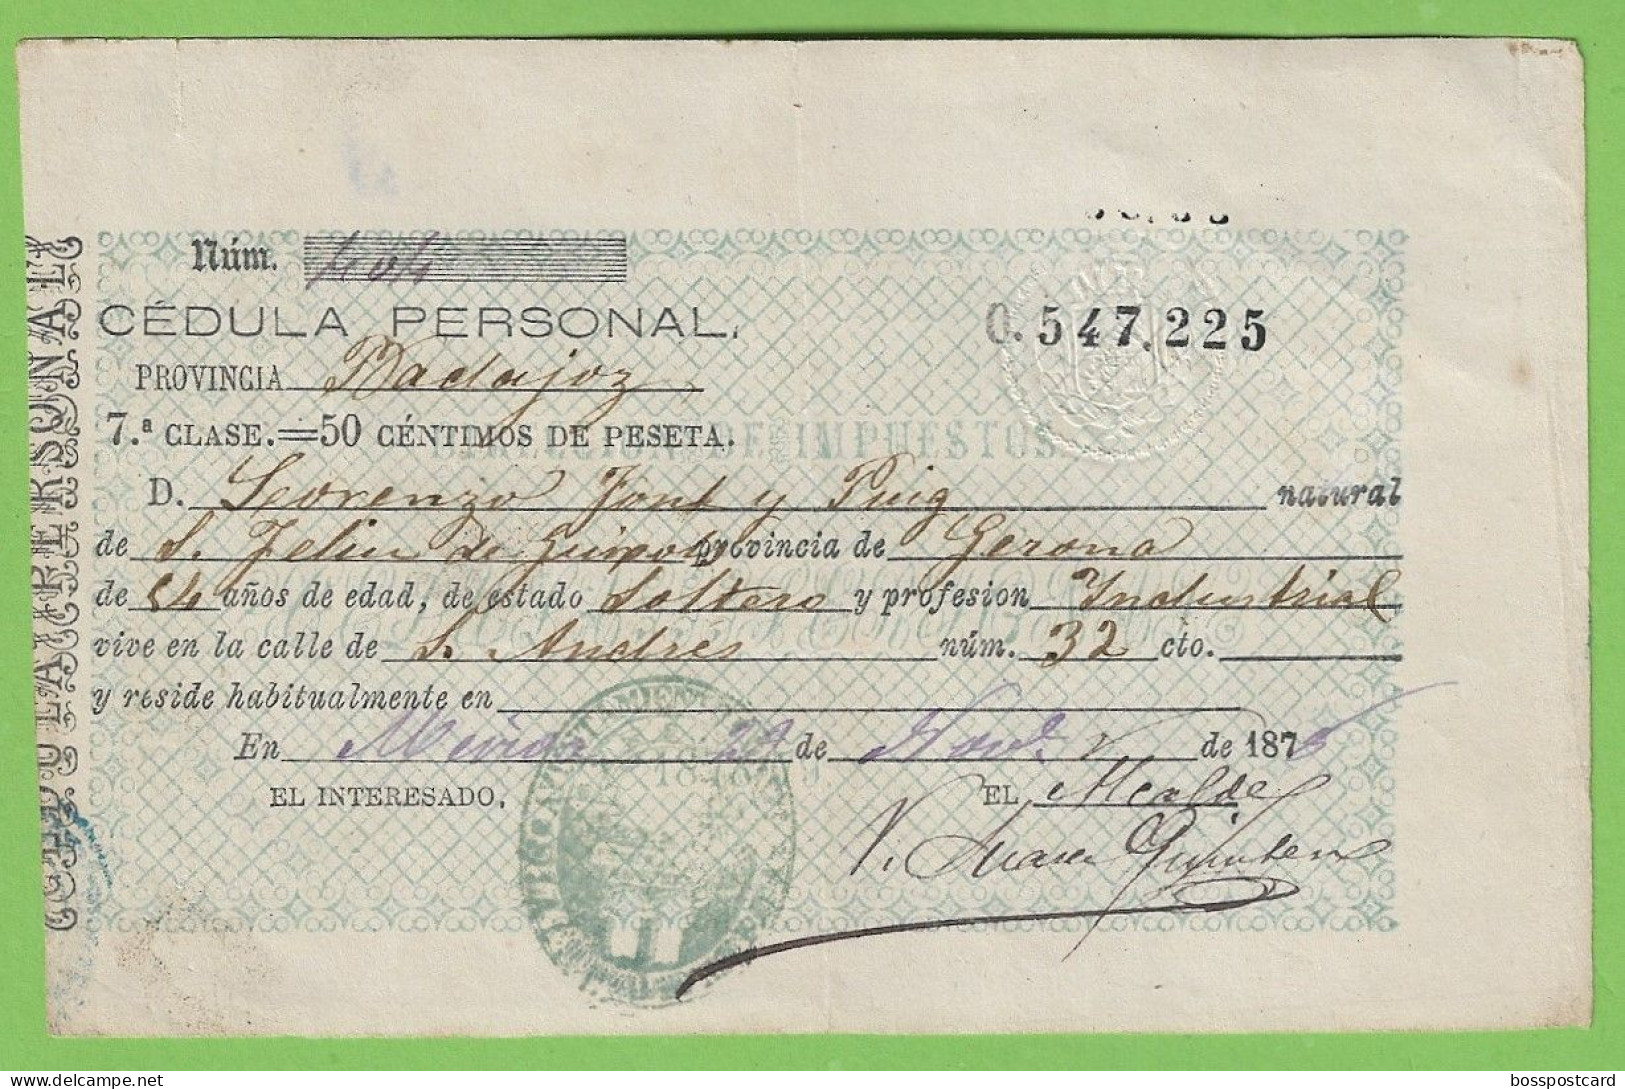 Núm. 404
CÉDULA PERSONAL.
0.547.225
PROVINCIA Badajoz
7.ª CLASE.=50 CÉNTIMOS DE PESETA.
DIRECCION DE IMPUESTOS
D. Lorenzo Font y Puig natural
de S. Feliu de Guixols provincia de Gerona
de 54 años de edad, de estado Soltero y profesion Industrial
vive en la calle de S. Andrés núm. 32 cto.
y reside habitualmente en
En 29 de Novbe. de 187
EL INTERESADO, EL Alcalde
CÉDULA PERSONAL
bosspostcard